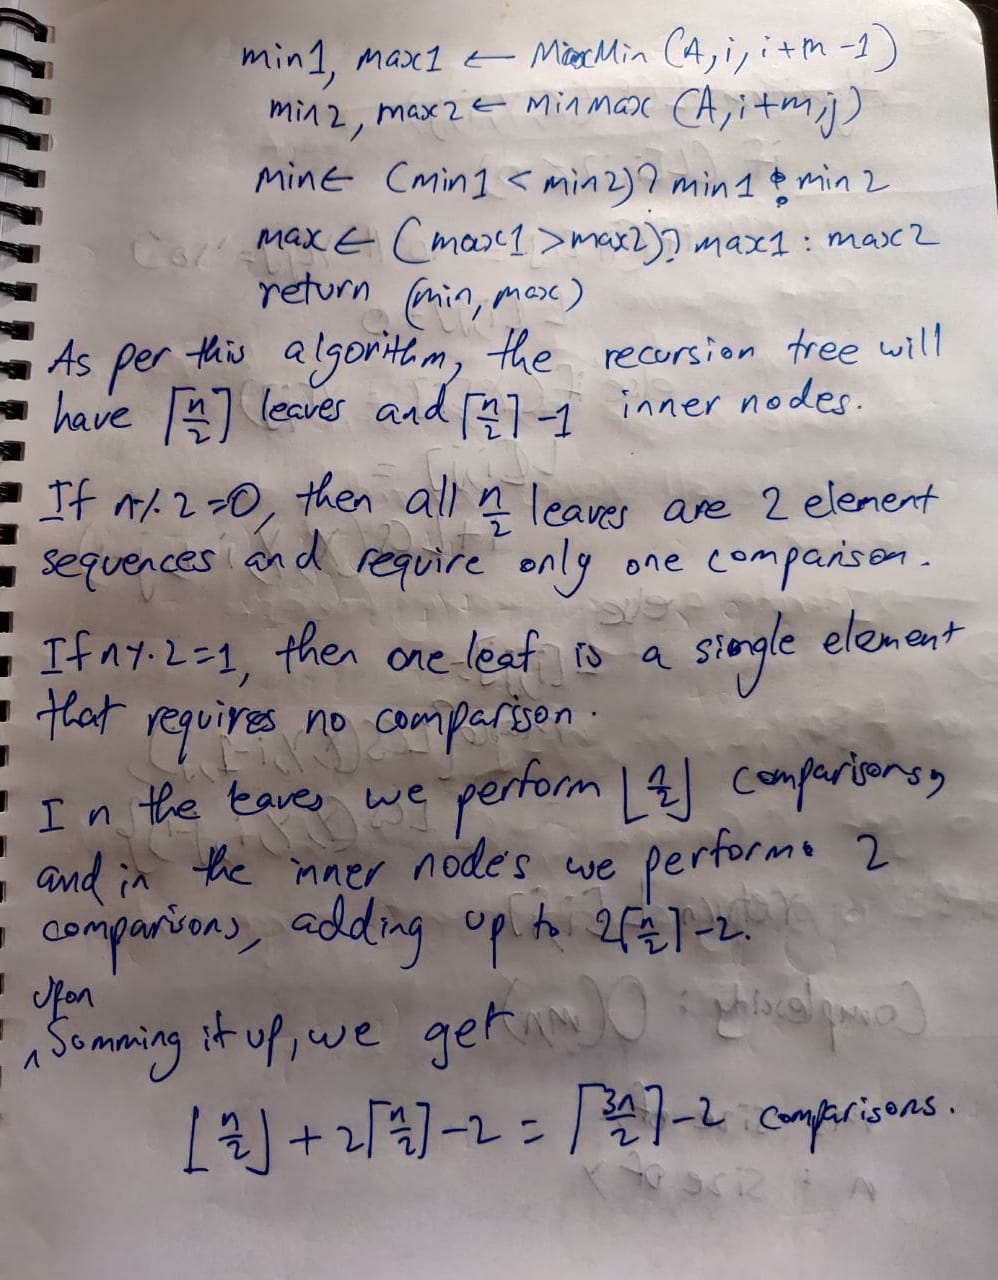 min1, max1 ← MaxMin (A,i, i+m-1)
min2, max2 ← minmax (A,i+m,j)
min ← (min1 < min2)? min1 : min2
max ← (max1 > max2)? max1 : max2
return (min, max)
As per this algorithm, the recursion tree will
have ⌈n/2⌉ leaves and ⌈n/2⌉-1 inner nodes.
If n%2=0, then all n/2 leaves are 2 element
sequences and require only one comparison.
If n%2=1, then one leaf is a single element
that requires no comparison.
In the leaves we perform ⌊n/2⌋ comparisons,
and in the inner nodes we perform 2
comparisons, adding up to 2⌈n/2⌉-2.
Upon
Summing it up, we get
⌊n/2⌋ + 2⌈n/2⌉-2 = ⌈3n/2⌉-2 comparisons.